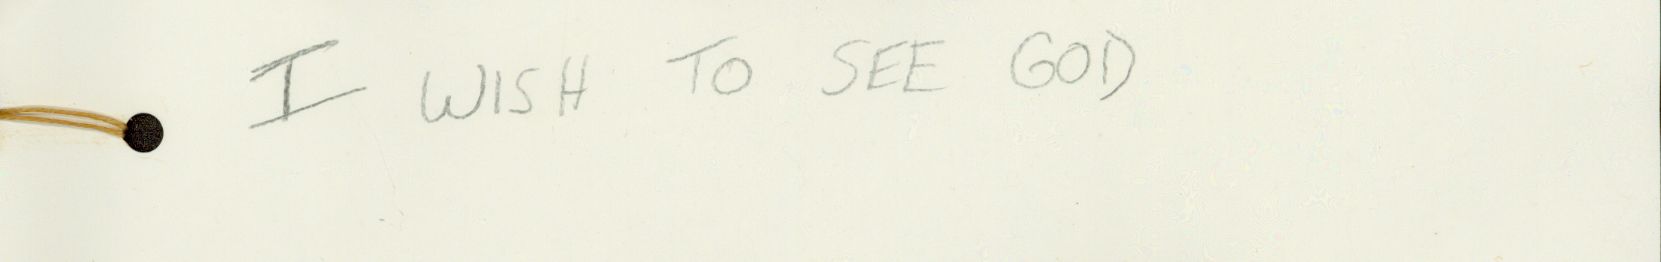 I WISH TO SEE GOD